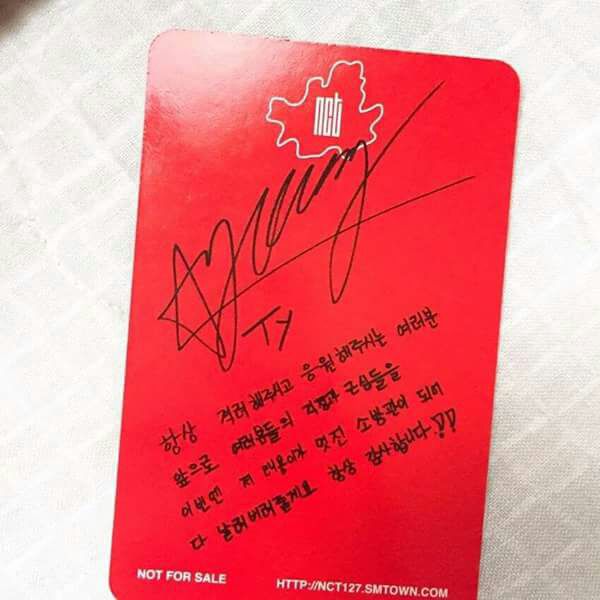 nct
TY
항상 격려해주시고 응원해주시는 여러분
앞으로 여러분들의 걱정과 근심들을
이번엔 저 태용이가 멋진 소방관이 되어
다 날려버려줄게요 항상 감사합니다!!
NOT FOR SALE
HTTP://NCT127.SMTOWN.COM